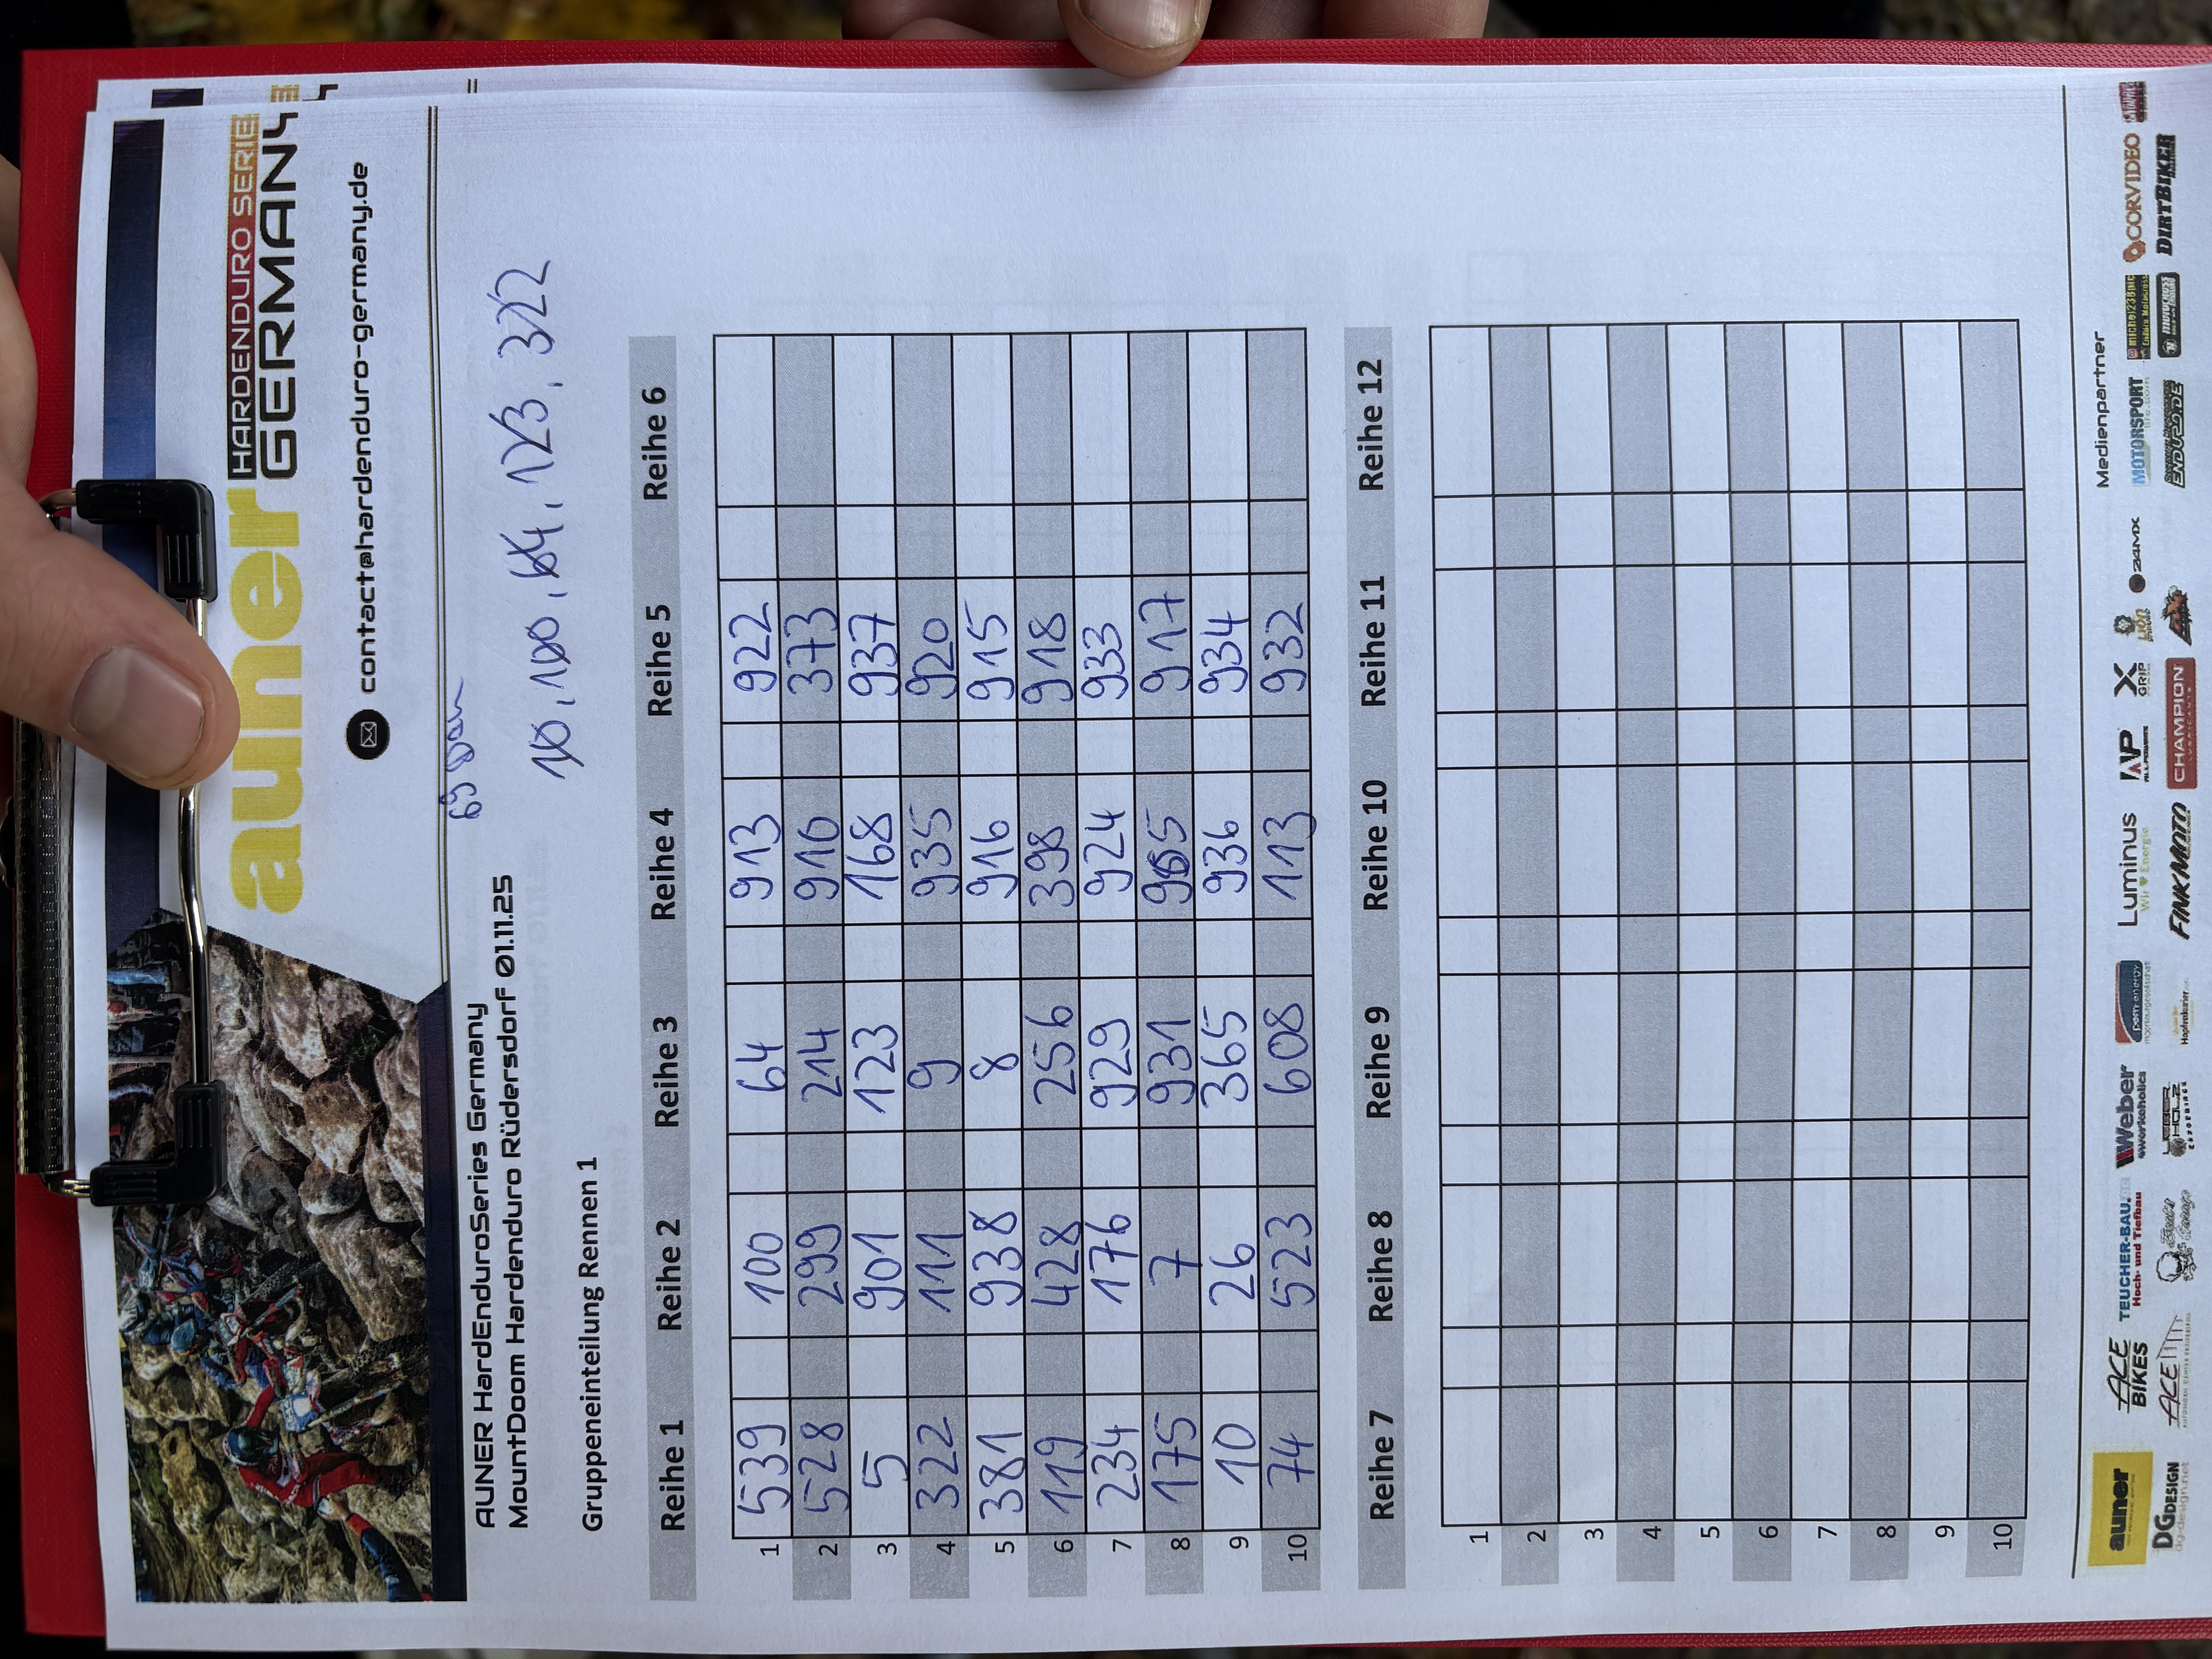 auner HARDENDURO SERIE
GERMANY
contact@hardenduro-germany.de
AUNER HardEnduroSeries Germany
MountDoom Hardenduro Rüdersdorf 01.11.25
10, 100, 64, 123, 322
Gruppeneinteilung Rennen 1
Reihe 1 Reihe 2 Reihe 3 Reihe 4 Reihe 5 Reihe 6
1 539 100 64 913 922
2 528 299 214 910 373
3 5 901 123 168 937
4 322 111 9 935 920
5 381 938 8 916 915
6 119 428 256 398 918
7 234 176 929 924 933
8 175 7 931 955 917
9 10 26 365 936 934
10 74 523 608 113 932
Reihe 7 Reihe 8 Reihe 9 Reihe 10 Reihe 11 Reihe 12
1
2
3
4
5
6
7
8
9
10
Medienpartner
auner ACE BIKES TEUCHER-BAU. Hoch- und Tiefbau Weber #workeholics pom.energy Luminus Wir ♥ Energie AP X GRIP LION 24MX MOTORSPORT CORVIDEO
DG DESIGN dg-design.net ACE LEDER HOLZ FINKMOTO CHAMPION LUBRICANTS ENDURO.DE DIRTBIKER